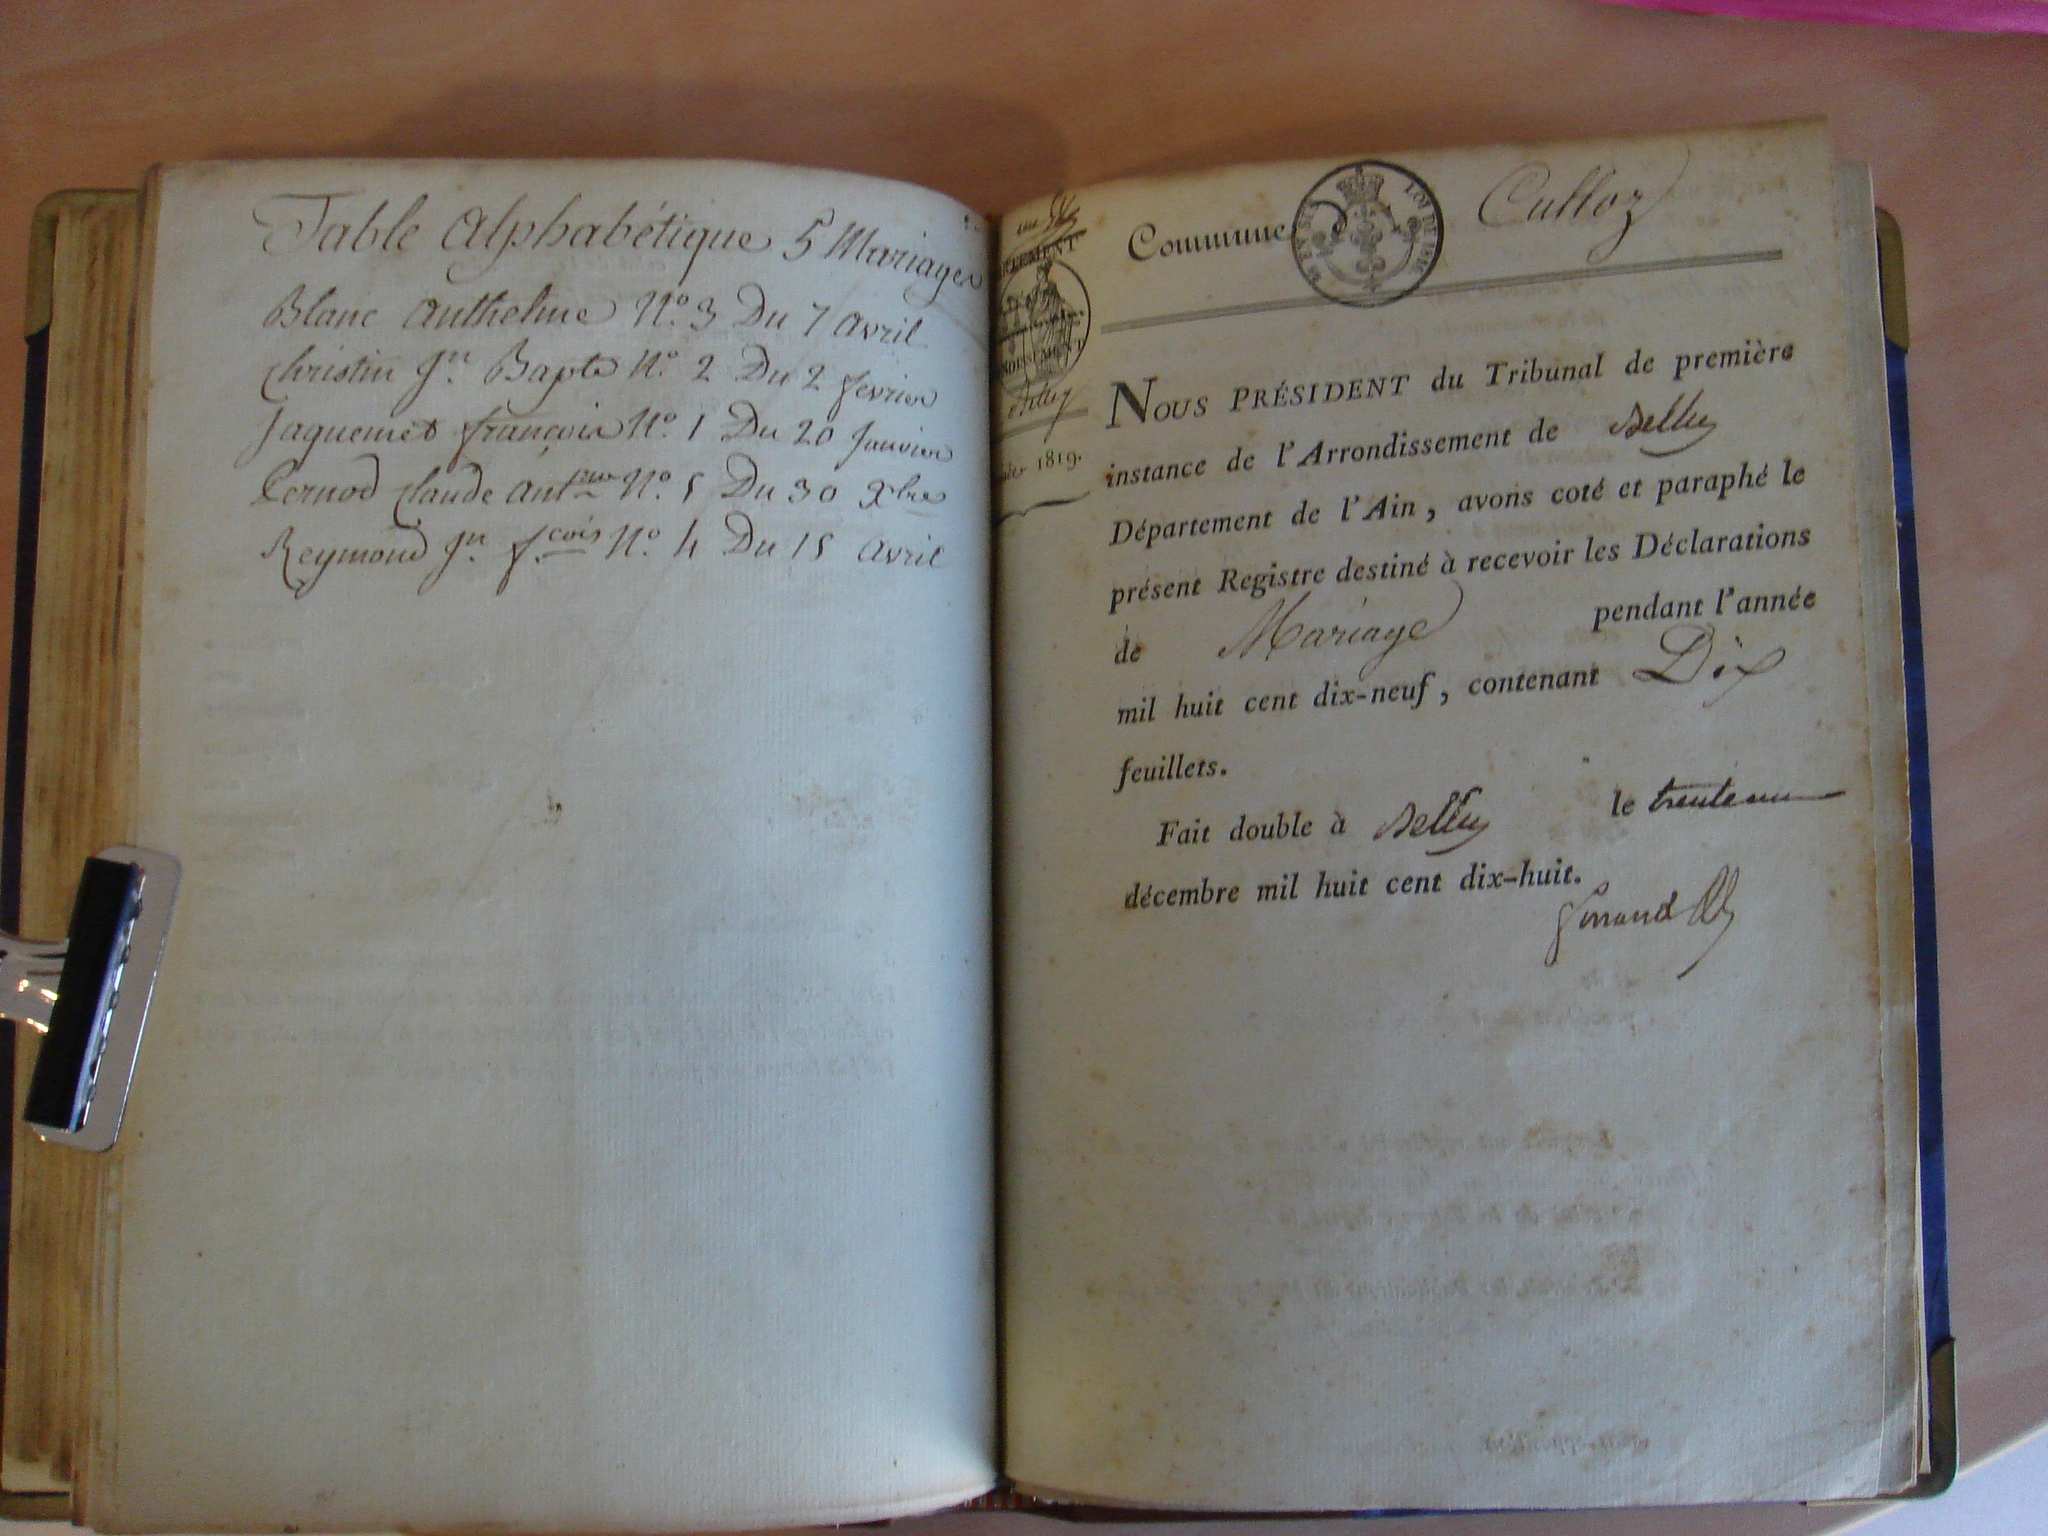 Table Alphabétique 5 Mariages
Blanc Anthelme N.o 3 Du 7 Avril
Christin Jn. Bapte N.o 2 Du 2 fevrier
Jaquemet françois N.o 1 Du 20 Janvier
Pernod Claude Ant.me N.o 5 Du 30 Xbre
Reymond Jn. f.cois N.o 4 Du 15 Avril
1819.
Commune de Culloz
LOI DE 1816
NOUS PRÉSIDENT du Tribunal de première
instance de l'Arrondissement de Belley
Département de l'Ain, avons coté et paraphé le
présent Registre destiné à recevoir les Déclarations
de Mariage pendant l'année
mil huit cent dix-neuf, contenant Dix
feuillets.
Fait double à Belley le trente un
décembre mil huit cent dix-huit.